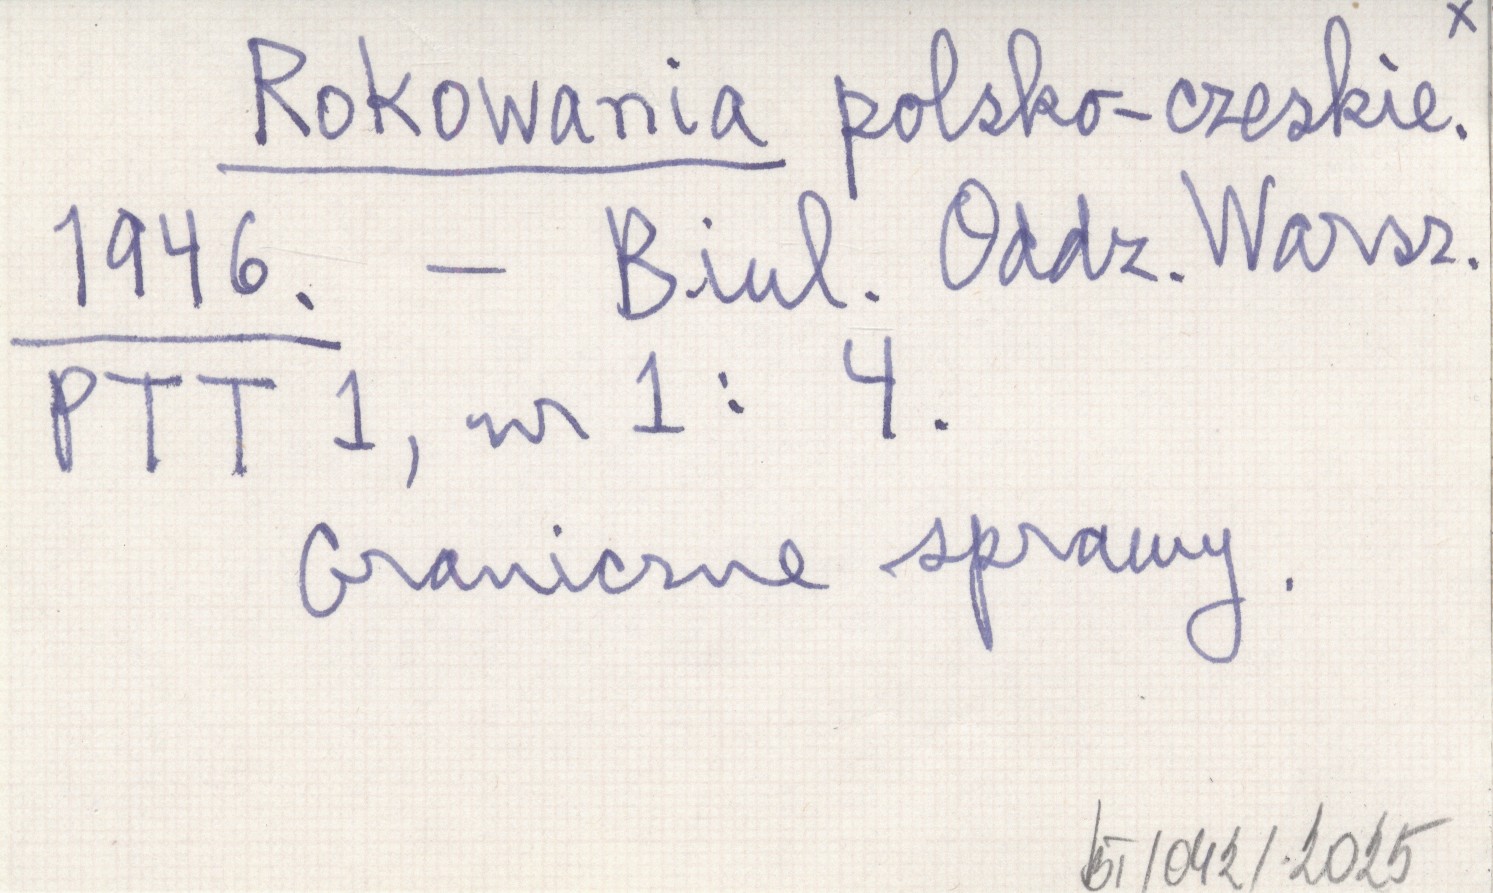 x
Rokowania polsko-czeskie.
1946. — Biul. Oddz. Warsz.
PTT 1, nr 1: 4.
Graniczne sprawy.
/042/2025